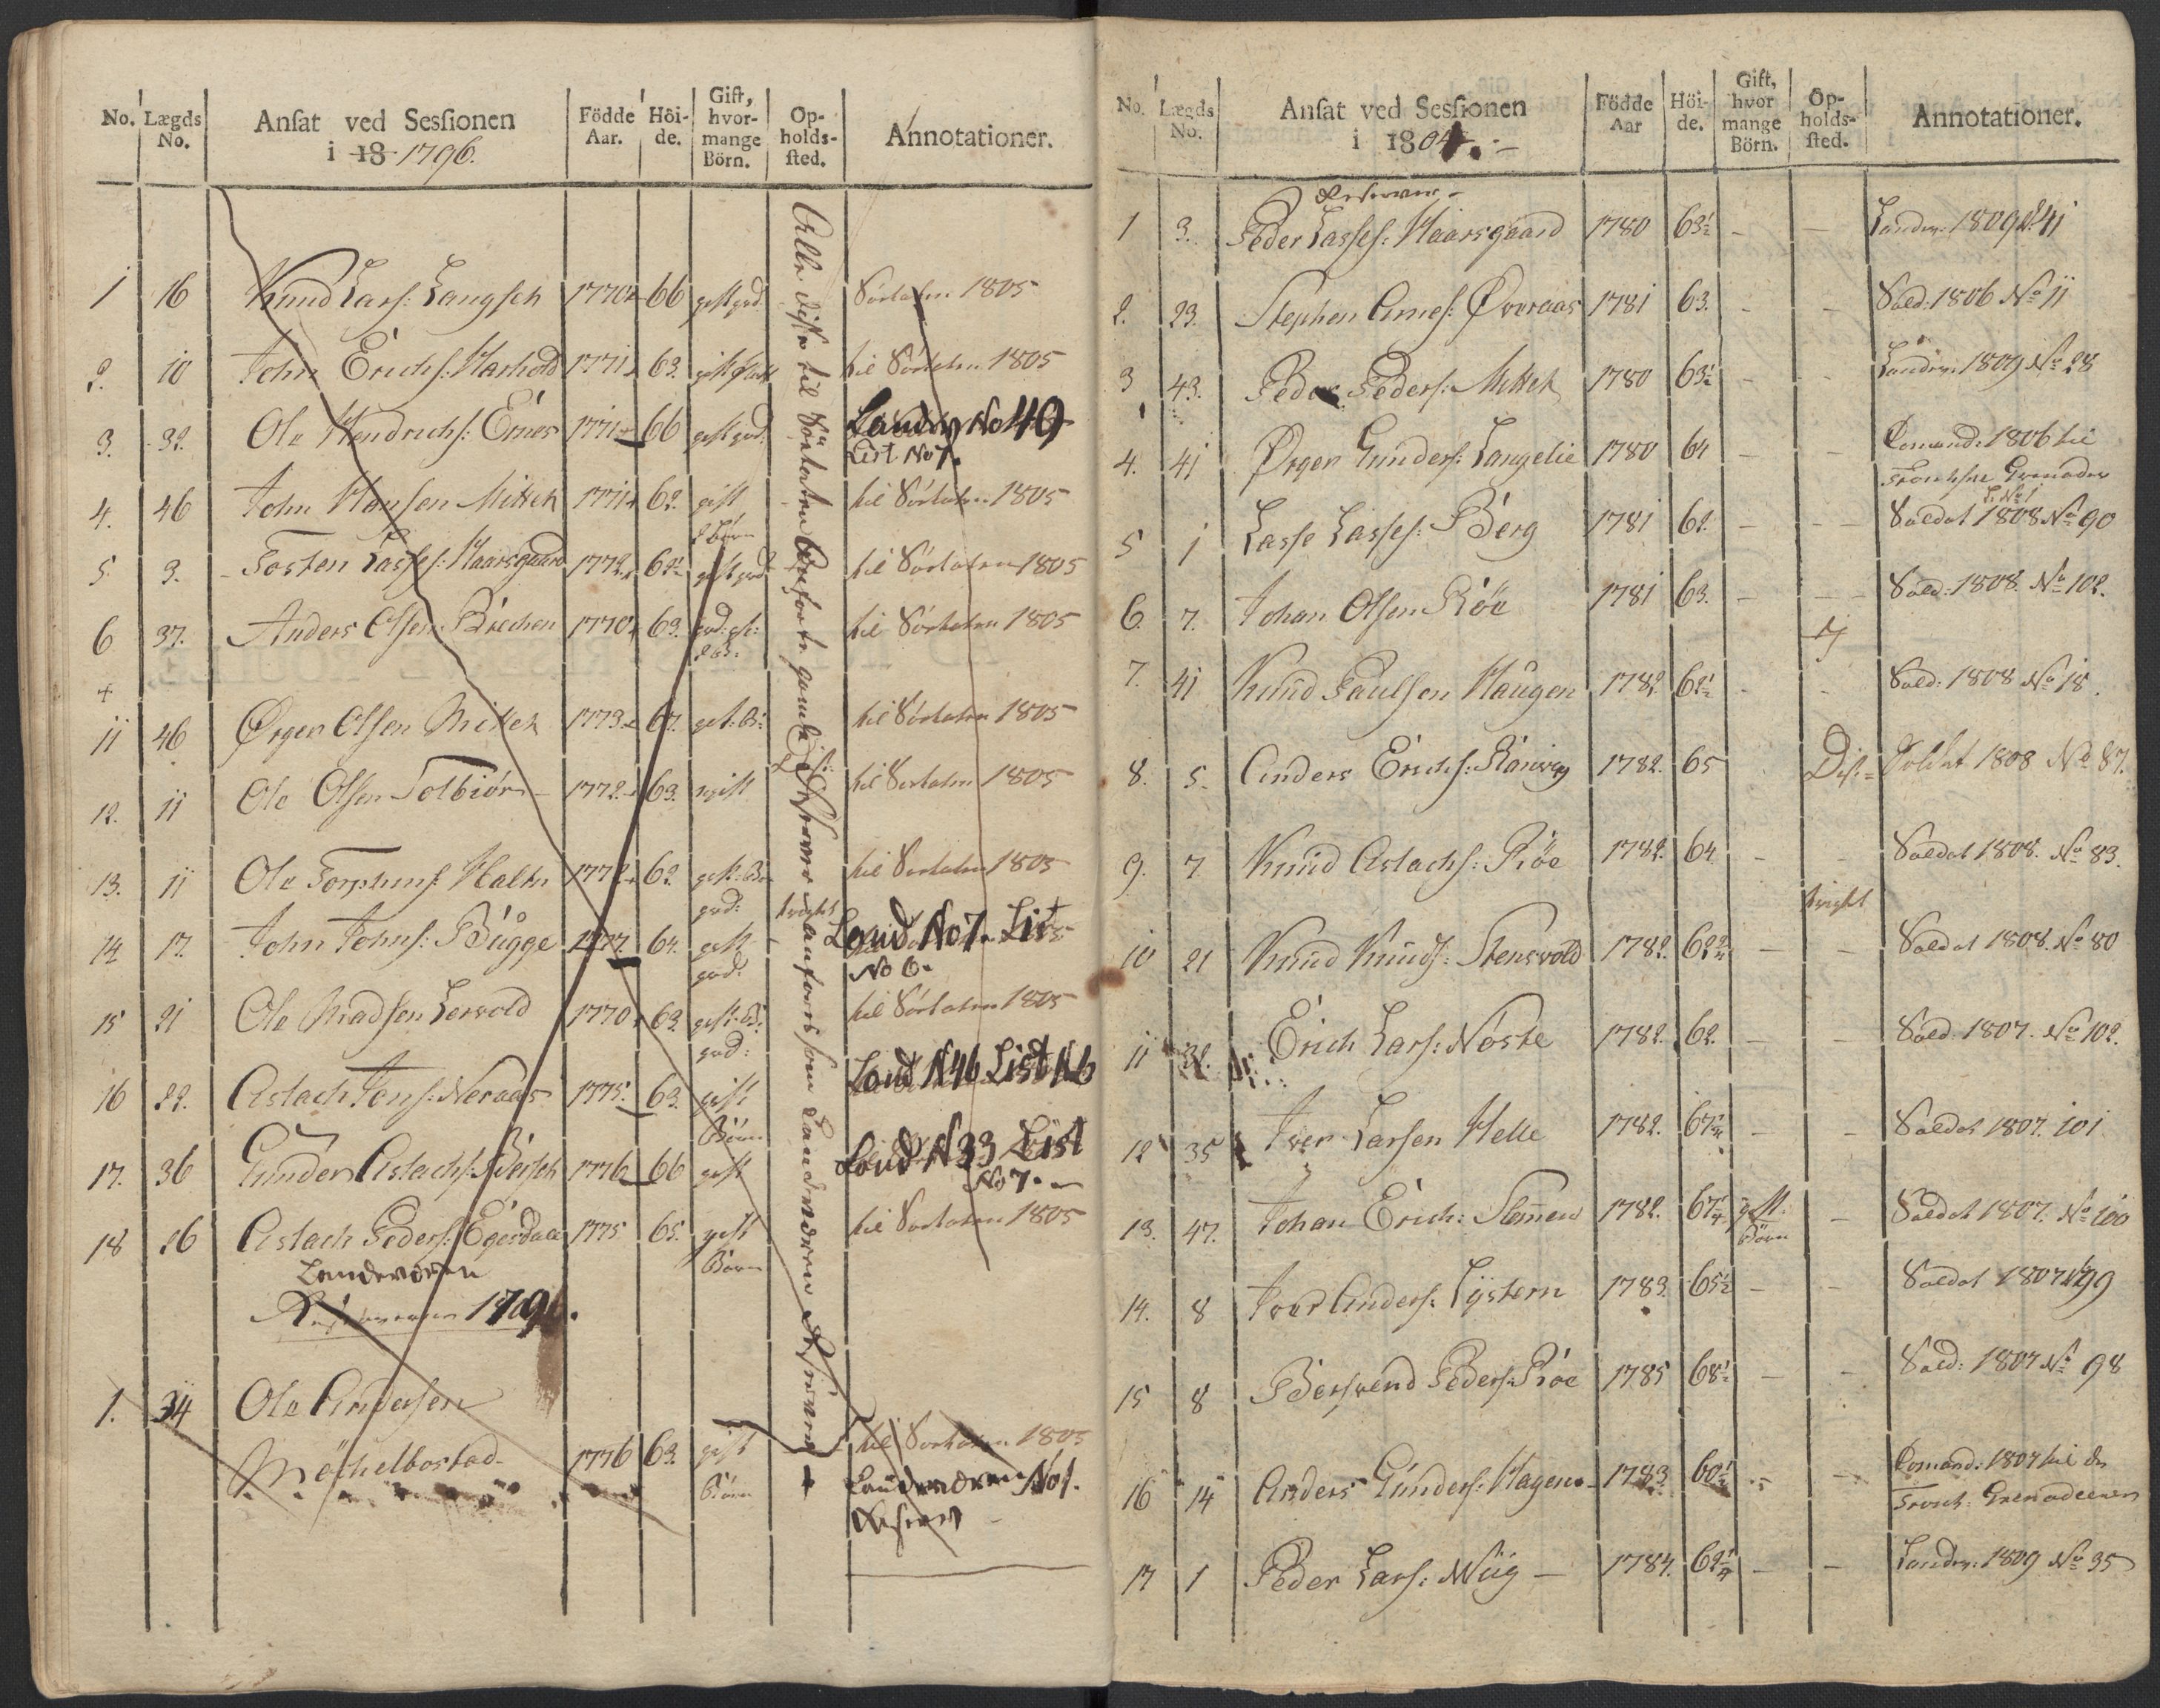 No. Lægds No. Ansat ved Sessionen i 18 1796. Födde Aar. Höide. Gift, hvormange Börn. Opholdssted. Annotationer.
1 16 Knud Lars: Langseth 1770 66 gift gvd. Sörlahn 1805
2. 10 John Erichs: Harhold 1771 63. gift til Sörlahn 1805
3. 32. Ole Hendrichs: Ernes 1771 66 gift gvd. Landv No 49
List No 7.
4. 46 John Hansen Mittet 1771 62. gift til Sörlahn 1805
2 Börn
5 3. Tosten Lasses: Haarsgaard 1772 62½ gift gvd til Sörlahn 1805
6 37. Anders Olsen Brechen 1770 63. gvd: gft: til Sörlahn 1805
2 Bö:
+
11 46 Ørgen Olsen Mittet 1773 67. get: Bö: til Sörlahn 1805
12. 11 Ole Olsen Solbiör 1772 63. ugift til Sörlahn 1805
13. 11 Ole Torstens: Halten 1772 62. gift: Bö til Sörlahn 1805
gvd:
14 17. John Johns: Bügge 1772 64. gift Land No 7. List
gvd: No 6.
15 21 Ole Madsen Lervold 1770 63. gift: Bö: til Sörlahn 1805
gvd:
16 22. Aslach Jons: Neraas 1775. 63. gift Land N 46 List N 6
Börn
17. 36 Gunder Aslachs: Bersch 1776 66 gift Land N 33 List
No 7.
18 26 Aslach Peders: Egerdahl 1775 65. gift til Sörlahn 1805
Landeværn Börn
Reserverer 1796.
1. 34 Ole Andersen
Möchelbostad 1776 63. gift til Sörlahn 1805
Börn Landeværn No 1.
Reserve
Alle disse til Sörlahn anförte gamle Reserver anföres som Landeværn Reserver
No. Lægds No. Ansat ved Sessionen i 1804. Födde Aar Höide. Gift, hvor mange Börn. Opholdssted. Annotationer.
Reserver
1 3. Peder Lasses: Haarsgaard 1780 63½ - - Landv: 1809 No 41
2. 23. Stephen Arnes: Øveraas 1781 63. - - Sold: 1806 No 11
3 43. Peder Peders: Mittet 1780 63½ - - Landv: 1809 No 28
4. 41 Ørgen Gunders: Langelie 1780 64 - - Comand: 1806 til
Tronhjne Grenader
5 1 Lasse Lasses: Berg 1781 62. - - Soldat 1808 No 90
6. 7. Johan Olsen Röe 1781 63. - - Sold: 1808. No 102.
7. 41 Knud Paulsen Haugen 1782 62½ - - Sold: 1808 No 18.
8. 5. Anders Erichs: Ranvig 1782. 65 Dis= Soldat 1808 No 87.
9. 7 Knud Aslachs: Röe 1782. 64 - - Soldat 1808. No 83.
10 21 Knud Knuds: Stensvold 1782. 62 2/4 - - Soldat 1808. No 80
11 32. Erich Lars: Nöste 1782. 62. - - Sold: 1807. No 102.
12 35 Iver Larsen Helle 1782. 67¼ - - Soldat 1807. 101
13. 47. Johan Erich: Slemen 1782. 67¼ gift. - Soldat 1807. No 100
Börn
14. 8 Iver Anders: Lystern 1783. 65½ - - Soldat 1807 No 99
15 8 Bersvend Peders: Röe 1785 68½ - - Sold: 1807 No 98
16 14 Anders Gunders: Hagen 1783 60½ - - Comand: 1807 til de
Tronh: Grenaderer
17 1 Peder Lars: Wiig - 1784. 62¼ - - Landv: 1809 No 35